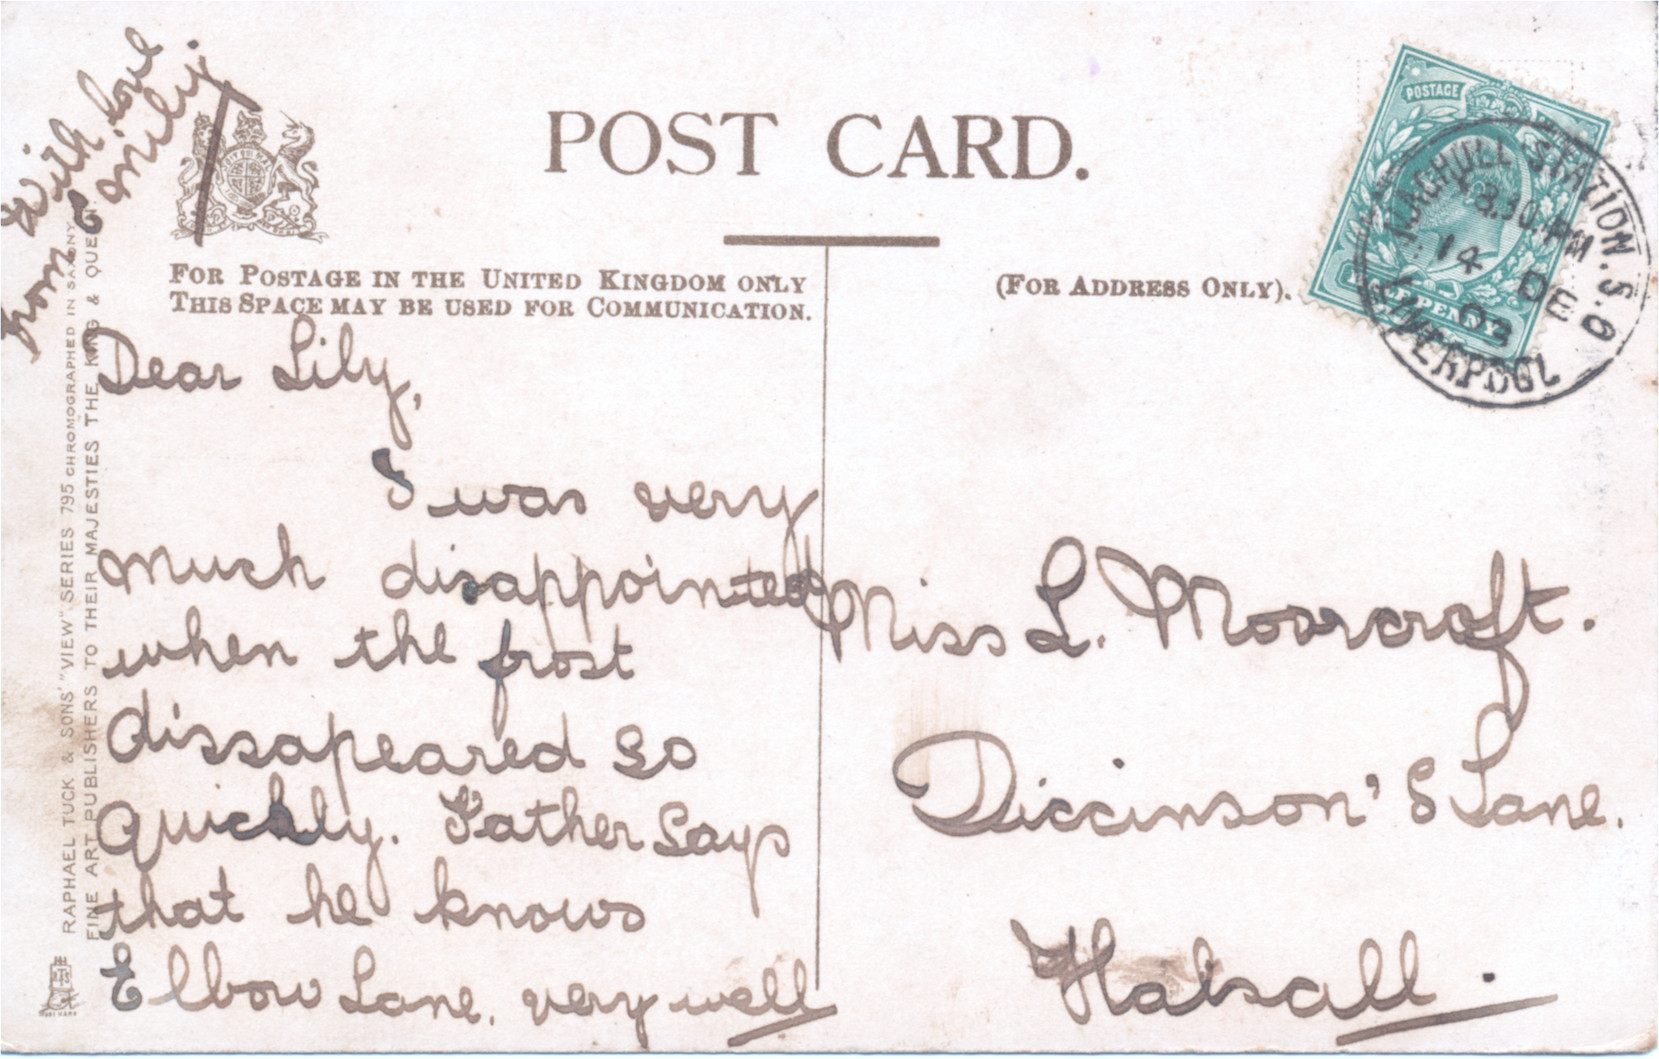 With love
from Emily
POST CARD.
FOR POSTAGE IN THE UNITED KINGDOM ONLY
THIS SPACE MAY BE USED FOR COMMUNICATION.
(FOR ADDRESS ONLY).
POSTAGE
HALFPENNY
MAGHULL STATION. S.O
8.30 PM
14 DE
03
LIVERPOOL
Dear Lily,
I was very
much disappointed
when the frost
dissapeared so
quickly. Father says
that he knows
Elbow Lane. very well
Miss L. Moorcroft.
Diccinson's Lane.
Halsall.
RAPHAEL TUCK & SONS' "VIEW" SERIES 795 CHROMOGRAPHED IN SAXONY
FINE ART PUBLISHERS TO THEIR MAJESTIES THE KING & QUE